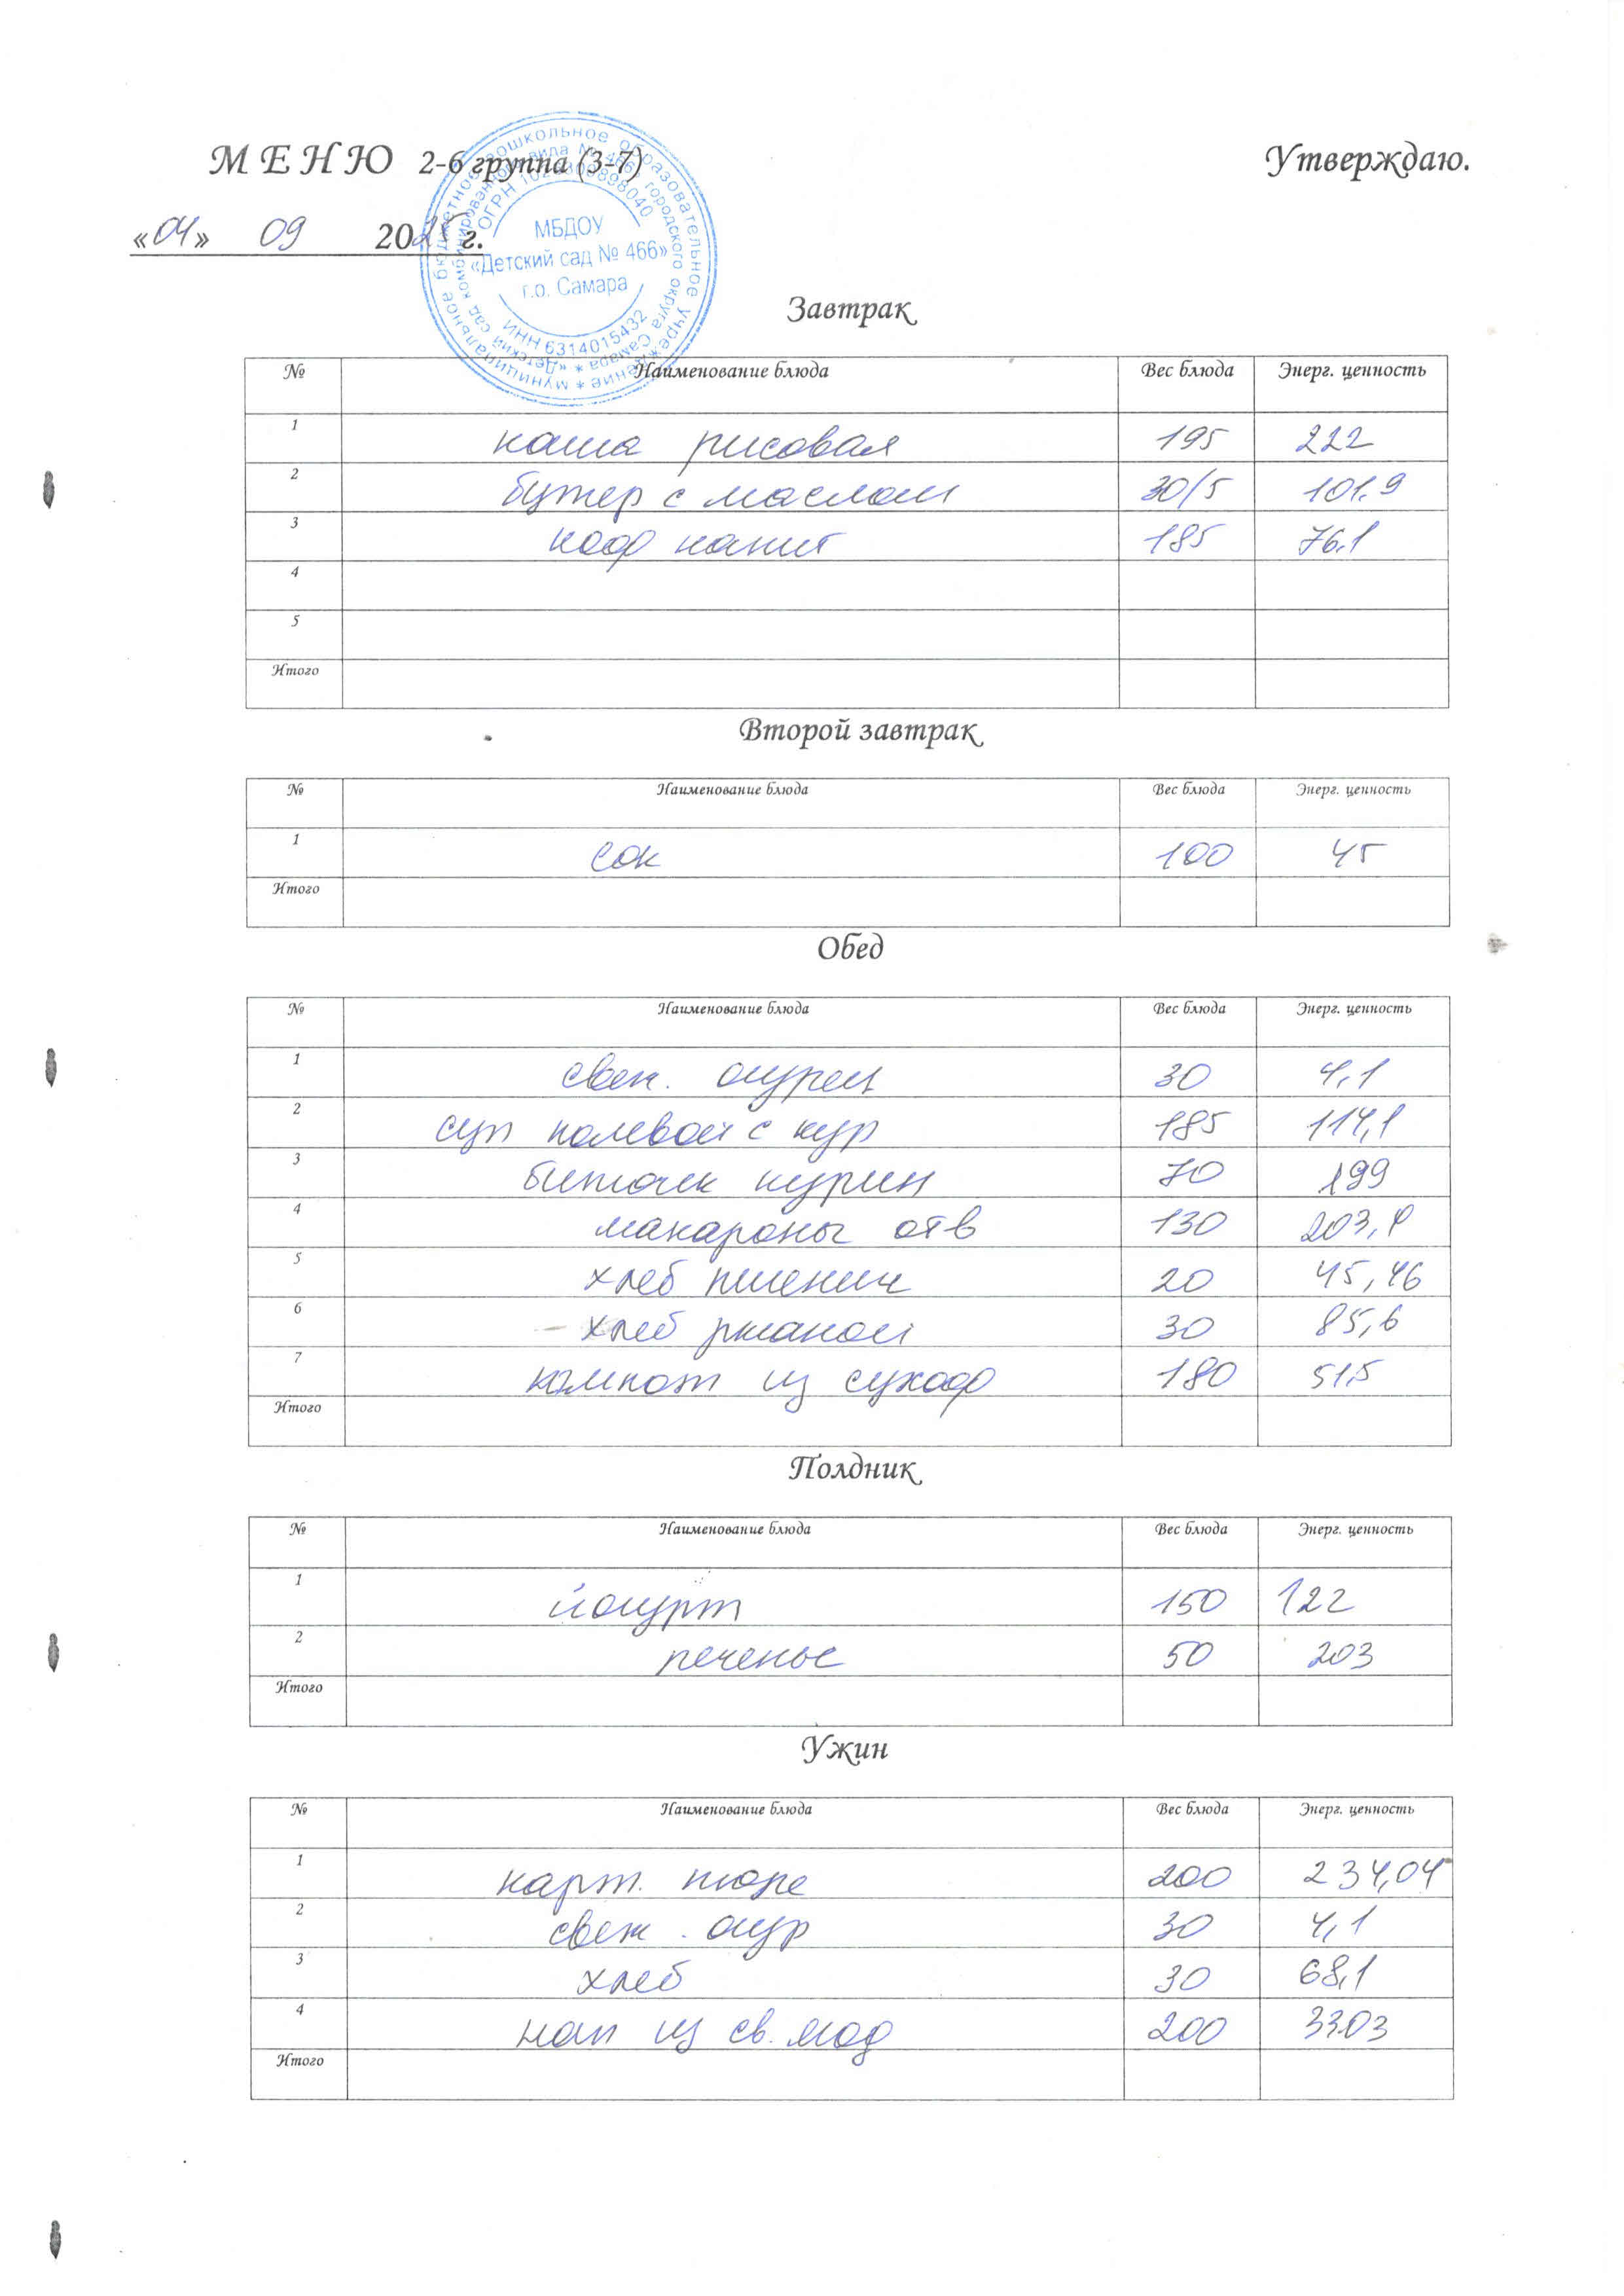 МЕНЮ 2-6 группа (3-7) Утверждаю.
«04» 09 2025 г.
муниципальное бюджетное дошкольное образовательное учреждение *
«Детский сад комбинированного вида № 466» городского округа Самара *
ОГРН
МБДОУ
«Детский сад № 466»
г.о. Самара
ИНН 6314015432
Завтрак
№ Наименование блюда Вес блюда Энерг. ценность
1 каша рисовая 195 222
2 бутер с маслом 30/5 101.9
3 коф напит 185 76.1
4
5
Итого
Второй завтрак
№ Наименование блюда Вес блюда Энерг. ценность
1 сок 100 45
Итого
Обед
№ Наименование блюда Вес блюда Энерг. ценность
1 свеж. огурец 30 4,1
2 суп полевой с кур 185 114,1
3 биточек курин 70 199
4 макароны отв 130
5 хлеб пшенич 20 45,46
6 хлеб ржаной 30 85,6
7 компот из сухоф 180 51,5
Итого
Полдник
№ Наименование блюда Вес блюда Энерг. ценность
1 йогурт 150 122
2 печенье 50 203
Итого
Ужин
№ Наименование блюда Вес блюда Энерг. ценность
1 карт. пюре 200 234,04
2 свеж. огур 30 4,1
3 хлеб 30 68,1
4 нап из св. 200 33.03
Итого